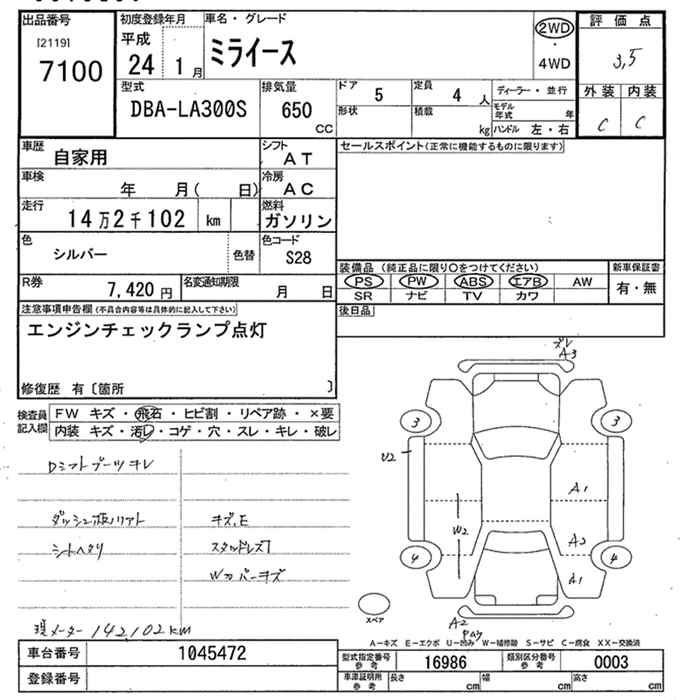 出品番号
[2119]
7100
初度登録年月
平成
24 1 月
車名・グレード
ミライース
2WD
・
4WD
評価点
3,5
外装 内装
C C
型式
DBA-LA300S
排気量
650
CC
ドア 5
定員 4 人
ディーラー・並行
形状
積載
kg
モデル年式 年
ハンドル 左・右
車歴
自家用
シフト
AT
セールスポイント(正常に機能するものに限ります)
車検
年 月( 日)
冷房
AC
走行
14万2千102 km
燃料
ガソリン
色
シルバー
色替
色コード
S28
R券
7,420 円
名変通知期限
月 日
装備品(純正品に限り○をつけてください)
PS PW ABS エアB AW
SR ナビ TV カワ
新車保証書
有・無
注意事項申告欄(不具合内容等は具体的に記入して下さい)
エンジンチェックランプ点灯
後日品
修復歴 有〔箇所 〕
検査員記入欄
FW キズ・飛石・ヒビ割・リペア跡・×要
内装 キズ・汚レ・コゲ・穴・スレ・キレ・破レ
Dシフトブーツキレ
シートヘタリ
キズ,E
スタッドレス
Wカバーキズ
現メーター 142,102KM
ズレ
A3
3
3
U2
A1
W2
A2
4
4
A1
A2
スペア
A-キズ E-エクボ U-凹み W-補修跡 S-サビ C-腐食 XX-交換済
車台番号
1045472
登録番号
型式指定番号
参考
16986
類別区分番号
参考
0003
車庫証明用
参考
長さ cm
幅 cm
高さ cm